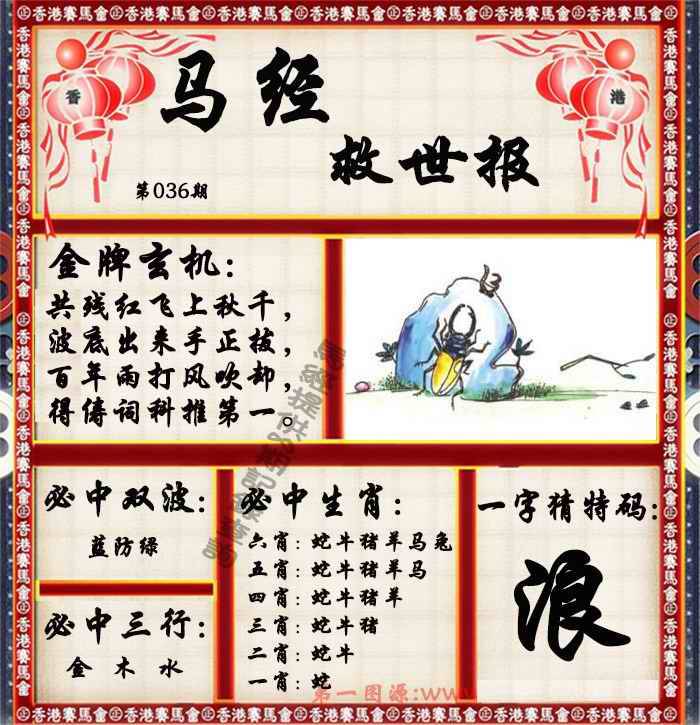 香港賽馬會
香 港
马经
救世报
第036期
金牌玄机:
共残红飞上秋千,
波底出来手正拔,
百年雨打风吹却,
得俦词科推第一。
必中双波:
蓝防绿
必中三行:
金 木 水
必中生肖:
六肖: 蛇牛猪羊马兔
五肖: 蛇牛猪羊马
四肖: 蛇牛猪羊
三肖: 蛇牛猪
二肖: 蛇牛
一肖: 蛇
一字猜特码:
浪
第一图源:www